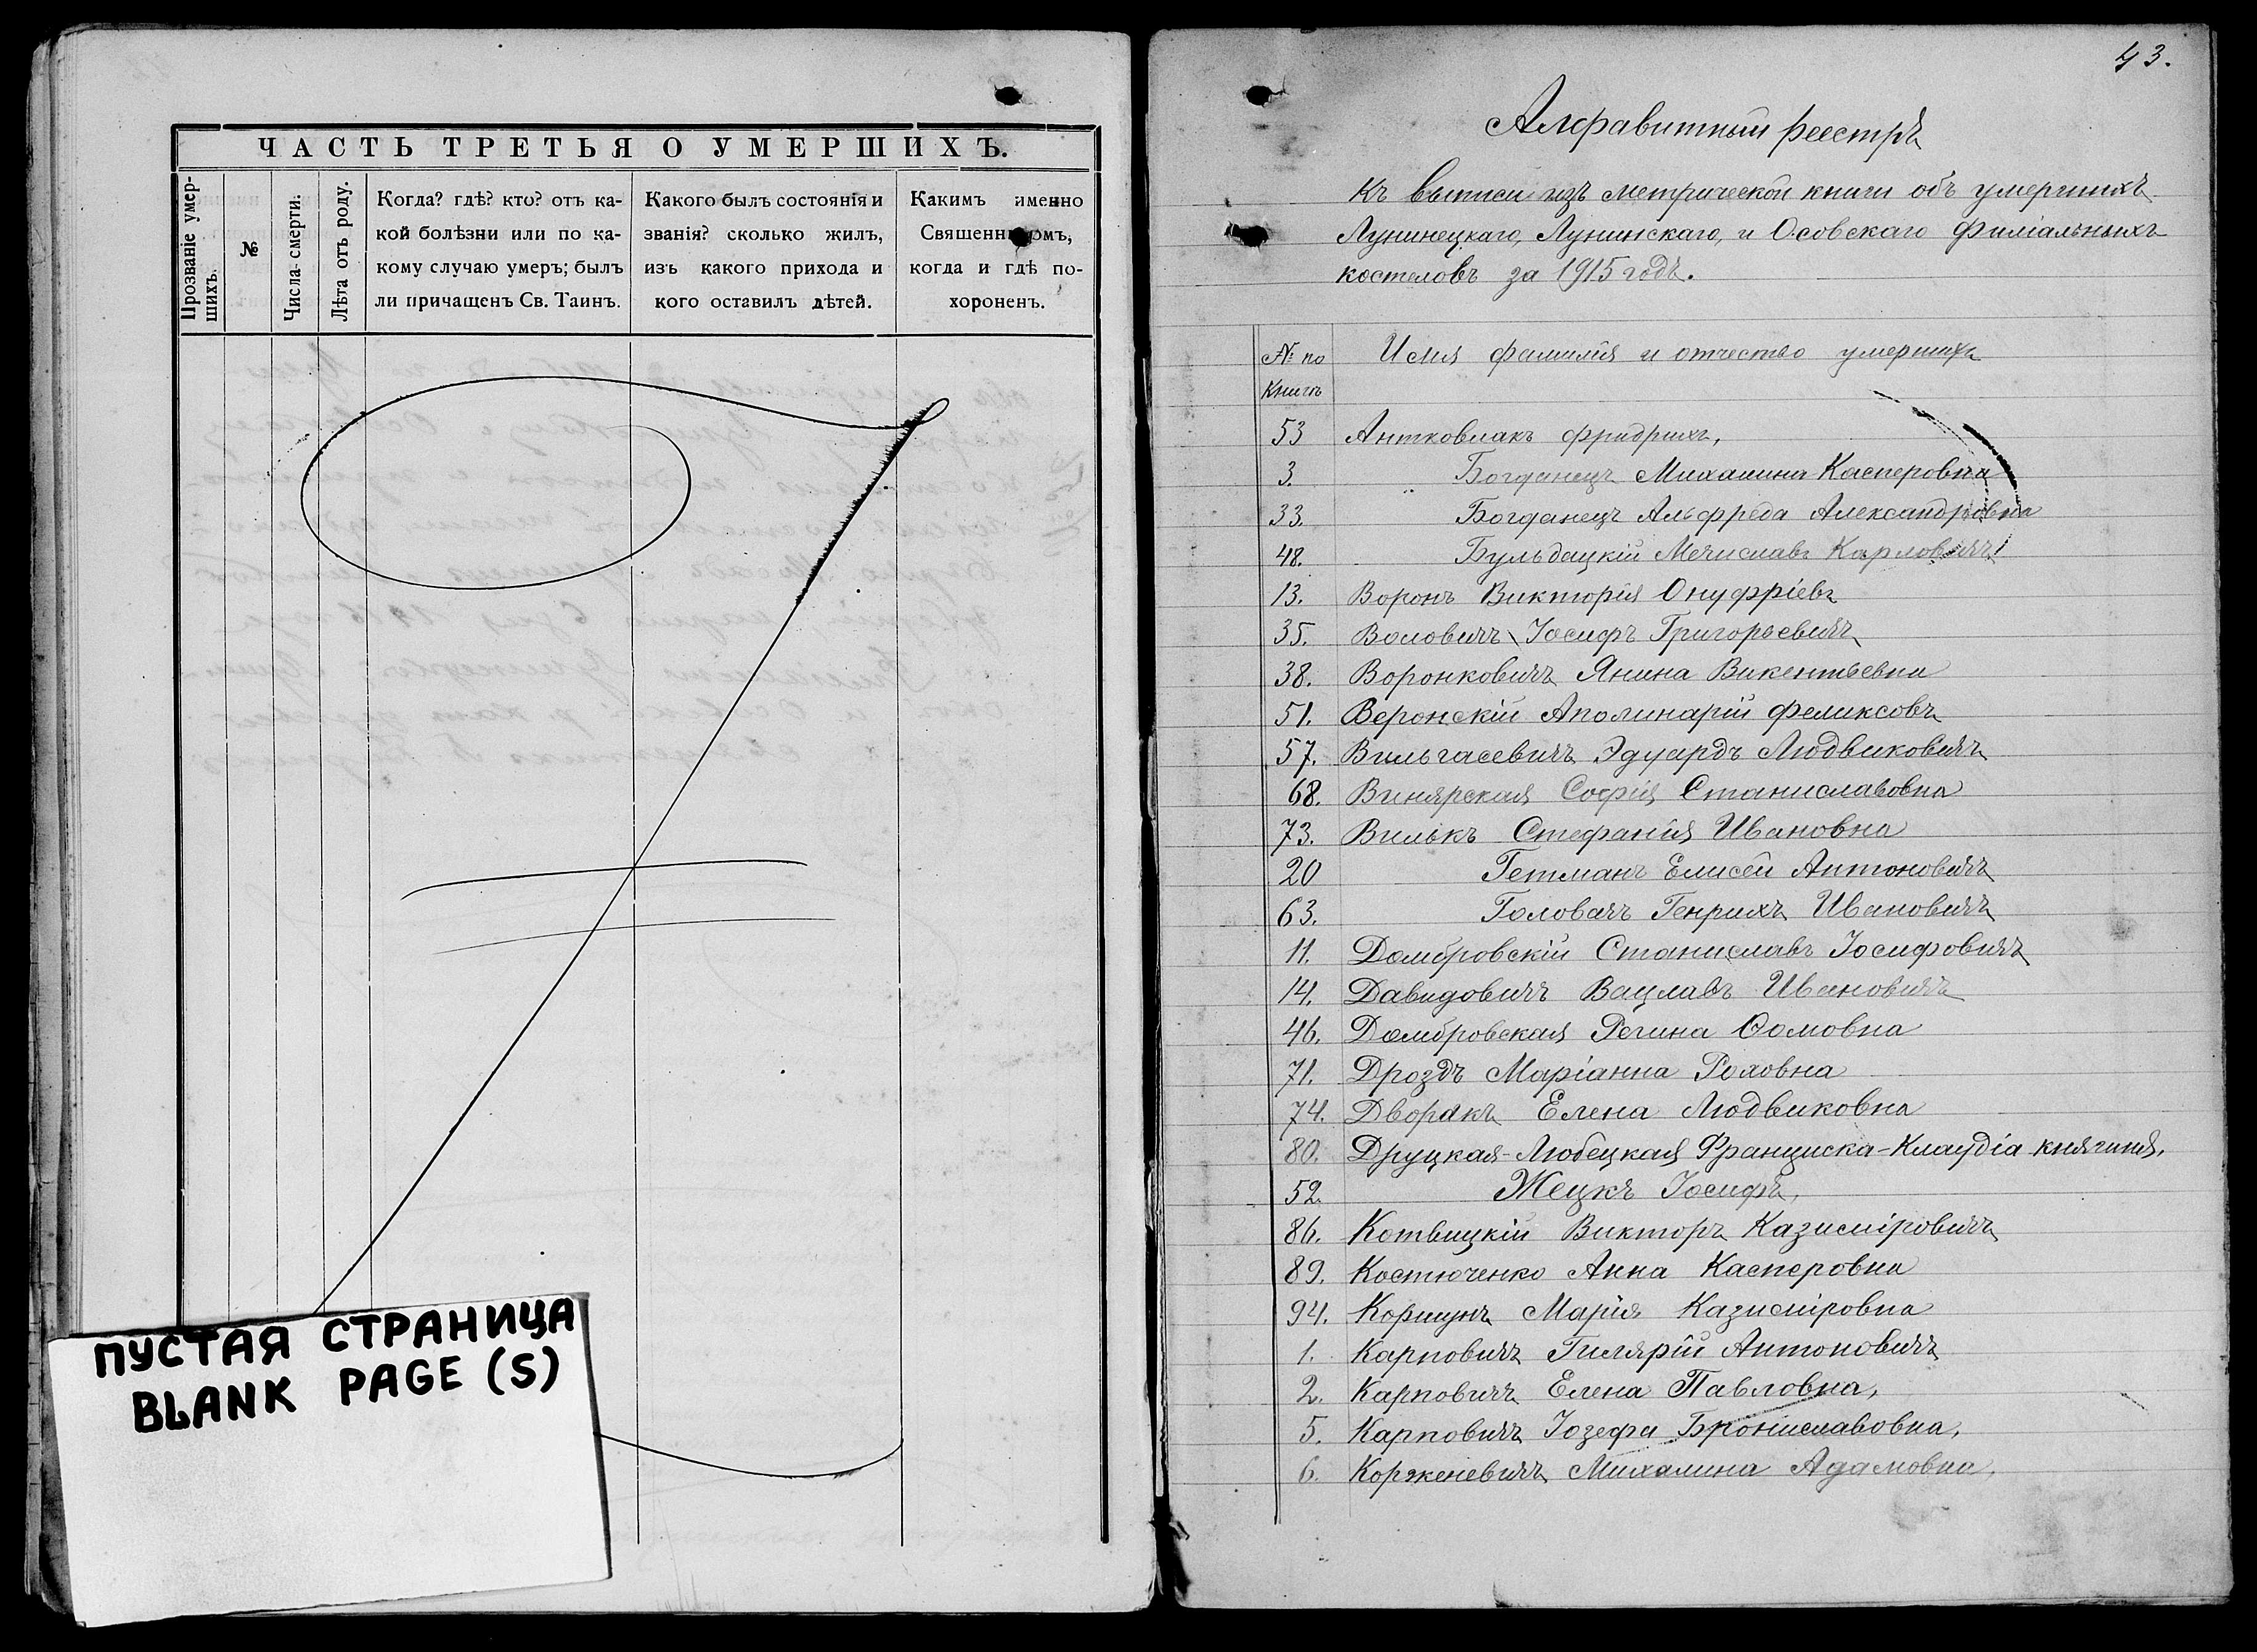 ЧАСТЬ ТРЕТЬЯ О УМЕРШИХЪ.
Прозваніе умер-
шихъ.
№
Числа смерти.
Лѣта отъ роду.
Когда? гдѣ? кто? отъ ка-
кой болѣзни или по ка-
кому случаю умеръ; былъ
ли причащенъ Св. Таинъ.
Какого былъ состоянія и
званія? сколько жилъ,
изъ какого прихода и
кого оставилъ дѣтей.
Каким именно
Священникомъ,
когда и гдѣ по-
хороненъ.
ПУСТАЯ СТРАНИЦА
BLANK PAGE (S)
43.
Алфавитный реестръ
Къ выписи изъ метрической книги объ умершихъ
Лунинецкаго, Лунинскаго, и Осовскаго филіальныхъ
костеловъ за 1915 годъ.
№ по книгѣ Имя фамилія и отчество умершихъ
53 Антковиакъ Фридрихъ,
3. Богданецъ Михалина Касперовна
33. Богданецъ Альфреда Александровна
48. Бульдацкій Мечиславъ Карловичъ
13. Воронъ Викторія Онуфріевъ
35. Воловичъ Іосифъ Григорьевичъ
38. Воронковичъ Янина Викентьевна
51. Веронскій Аполинарій Феликсовъ
57. Вильгасевичъ Эдуардъ Людвиковичъ
68. Винярская Софія Станиславовна
73. Вилькъ Стефанія Ивановна
20 Гетманъ Елисей Антоновичъ
63. Головачъ Генрихъ Ивановичъ
11. Домбровскій Станиславъ Іосифовичъ
14. Давидовичъ Вацлавъ Ивановичъ
46. Домбровская Регина Ѳомовна
71. Дроздъ Маріанна Роховна
74. Дворакъ Елена Людвиковна
80. Друцкая-Любецкая Франциска-Клаудіа княгиня,
52. Жецкъ Іосифъ,
86. Котвицкій Викторъ Казиміровичъ
89. Костюченко Анна Касперовна
94. Коршунъ Марія Казиміровна
1. Карповичъ Гилярій Антоновичъ
2. Карповичъ Елена Павловна,
5. Карповичъ Іозефа Брониславовна,
6. Корженевичъ Михалина Адамовна,